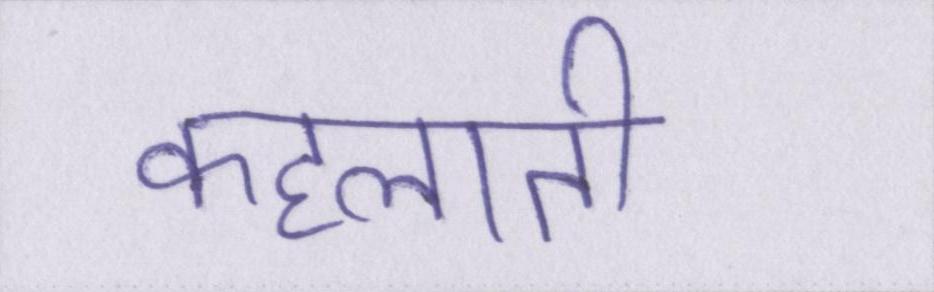 कहलाती